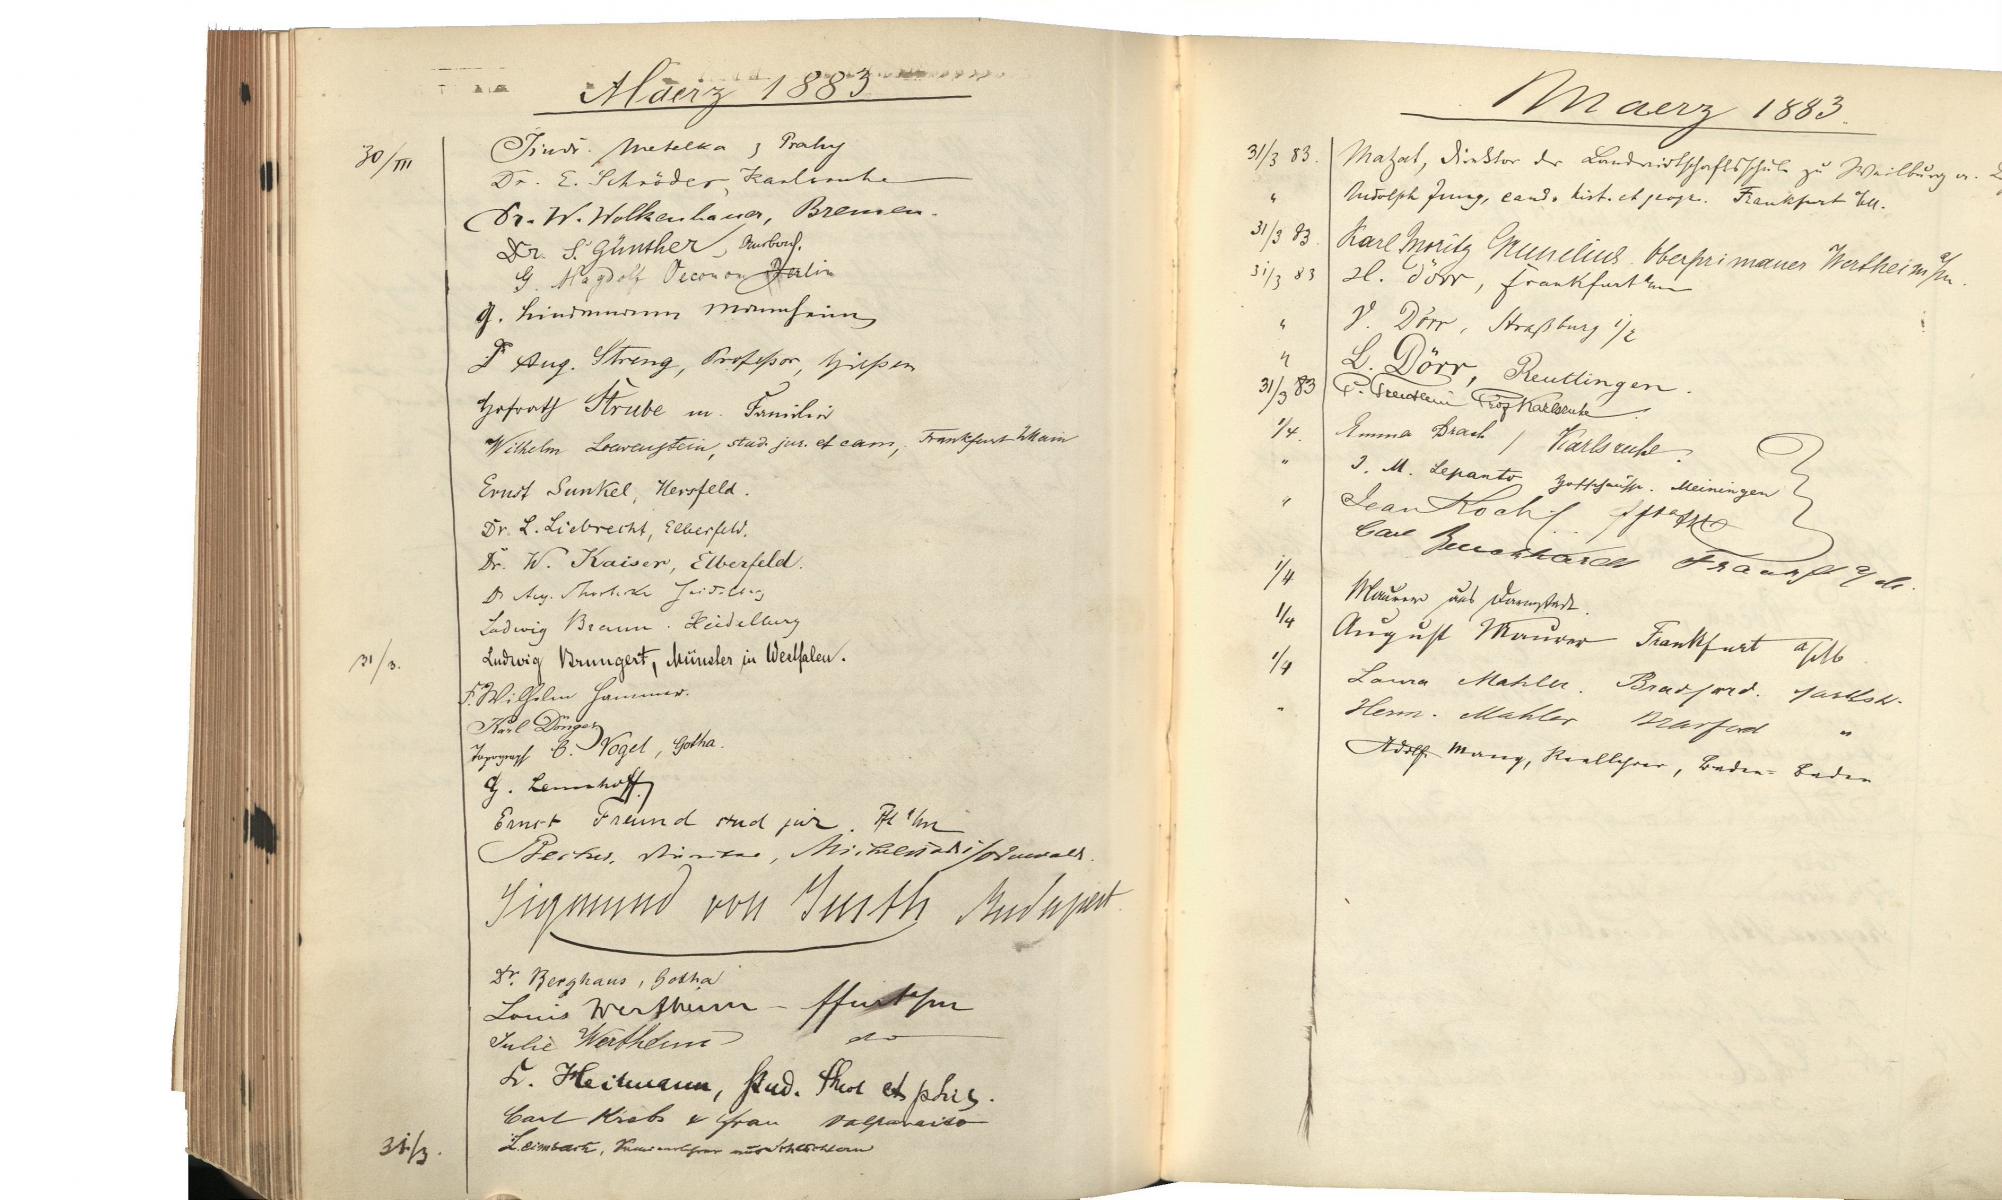 Maerz 1883
30/III
Jindř. Metelka z Prahy
Dr. E. Schröder, Karlsruhe
Dr. W. Wolkenhauer, Bremen.
Dr. S. Günther, Ansbach.
G. Magdolf Oeconom Berlin
G. Lindemann Mannheim
Dr Aug. Streng, Professor, Gießen
Hofrath Strube m. Familie
Wilhelm Loewenstein, stud. jur. et cam., Frankfurt Main
Ernst Sunkel, Hersfeld.
Dr. L. Liebrecht, Elberfeld.
Dr. W. Kaiser, Elberfeld.
Dr Aug. Heidelberg
Ludwig Braun. Heidelberg
31/3.
Ludwig Brungert, Münster in Westfalen.
F. Wilhelm Hammer.
Karl Dönges
Topograph C. Vogel, Gotha.
G. Lennhoff
Ernst Freund stud jur. Ff a/m
Becker, Michelstadt i/Odenwald.
Sigmund von Budapest.
Dr. Berghaus, Gotha
Louis Wertheim – Ffurt a/m
Julie Wertheim do
Fr. Heitmann, stud. theol et phil.
Carl Krebs & Frau Valparaiso
31/3.
Leimbach, aus Schlüchtern
Maerz 1883.
31/3 83. Matzat, Direktor der Landwirtschaftsschule zu Weilburg a.
" Rudolph Jung, cand. hist. et geogr. Frankfurt a/M.
31/3 83. Karl Moritz Oberprimaner Wertheim a/m.
31/3 83 H. Dörr, Frankfurt a/m
" V. Dörr, Straßburg i/E
" L. Dörr, Reutlingen.
31/3 83 P. Treutlein Prof Karlsruhe.
1/4. Emma Drach / Karlsruhe.
" J. M. Lepanto Hofschausp. Meiningen
" Jean Koch
Carl Burckhardt Frankf a/M.
1/4 Maurer aus Darmstadt.
1/4 August Maurer Frankfurt a/M
1/4 Laura Mahler. Bradford.
" Herm. Mahler Bradford "
Adolf Mang, Reallehrer, Baden-Baden